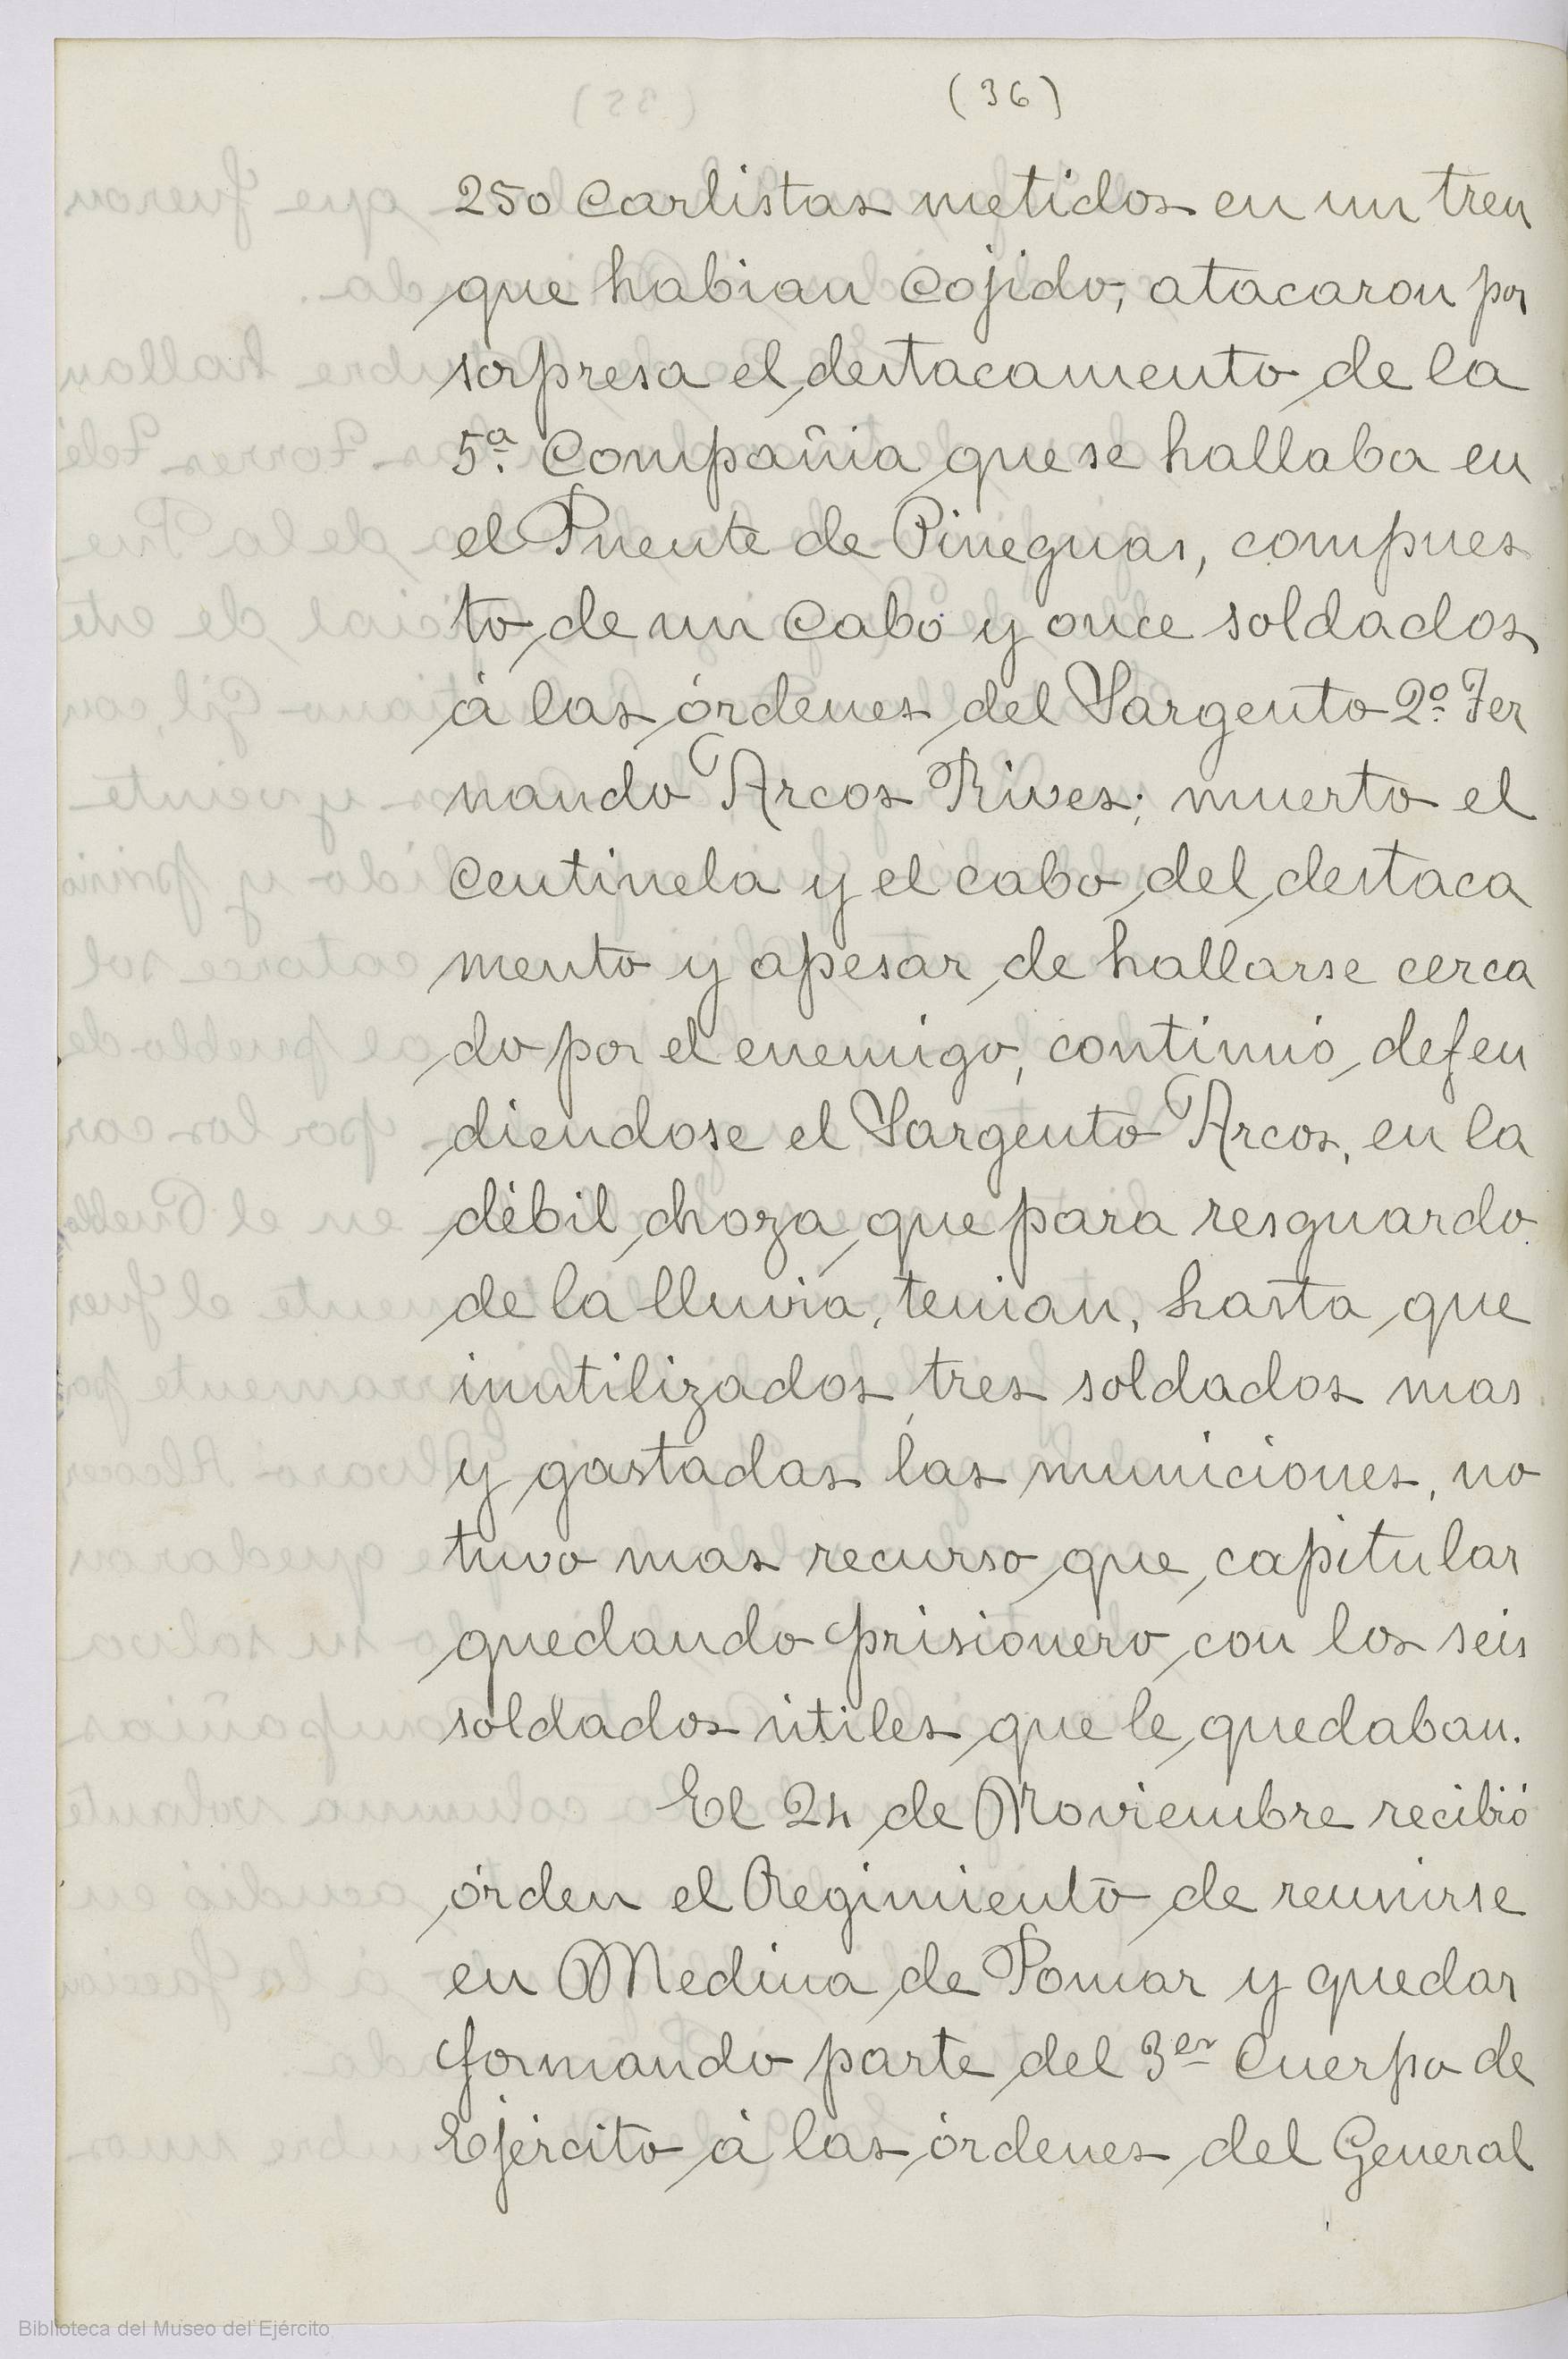 (36)
250 Carlistas metidos en un tren
que habian cojido, atacaron por
sorpresa el destacamento de la
5.ª Compañia que se hallaba en
el Puente de Pineguas, compues
to de un Cabo y once soldados
á las órdenes del Sargento 2.º Fer
nando Arcos Rives; muerto el
Centinela y el cabo del destaca
mento y apesar de hallarse cerca
do por el enemigo, continuó defen
diendose el Sargento Arcos, en la
débil choza que para resguardo
de la lluvia, tenian, hasta que
inutilizados tres soldados mas
y gastadas las municiones, no
tuvo mas recurso que capitular
quedando prisionero con los seis
soldados útiles que le quedaban.
El 24 de Noviembre recibió
órden el Regimiento de reunirse
en Medina de Pomar y quedar
formando parte del 3er Cuerpo de
Ejército á las órdenes del General
Biblioteca del Museo del Ejército